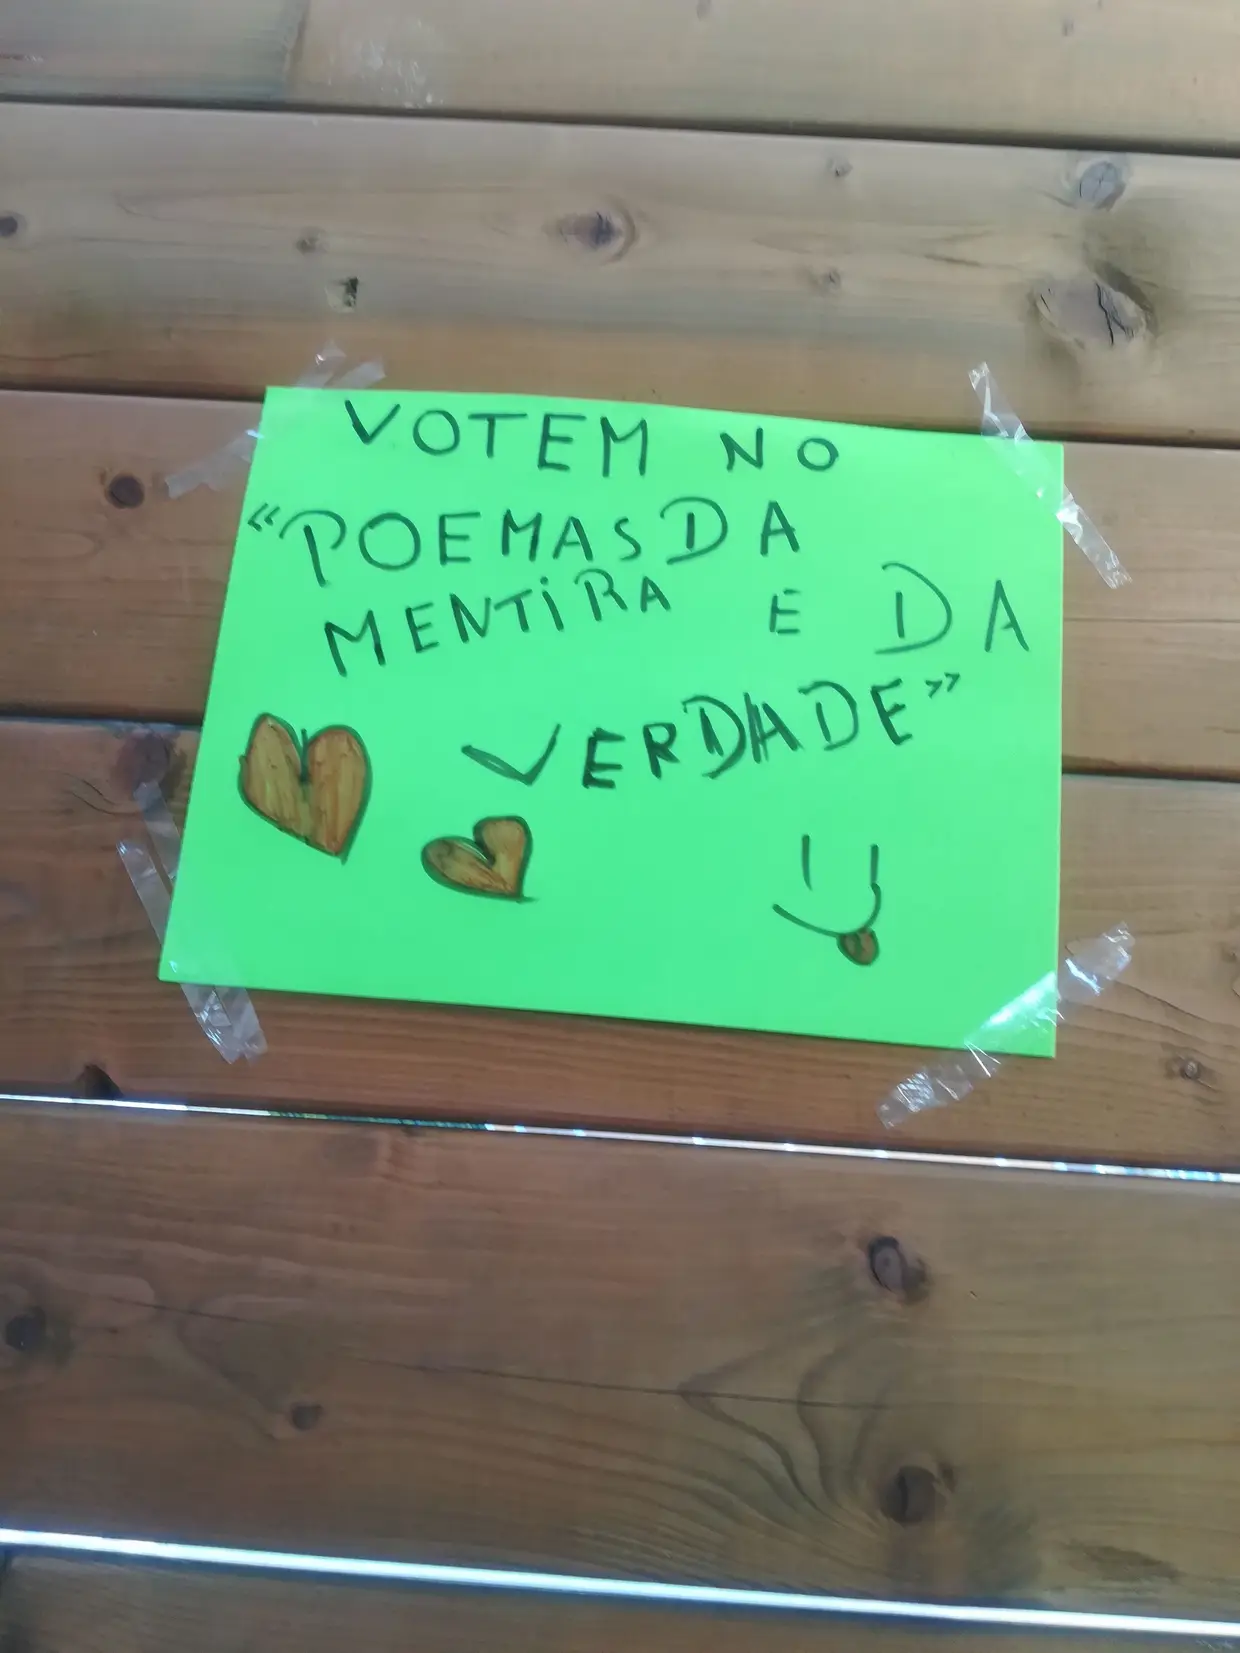 VOTEM NO
"POEMAS DA
MENTiRA E DA
VERDADE"